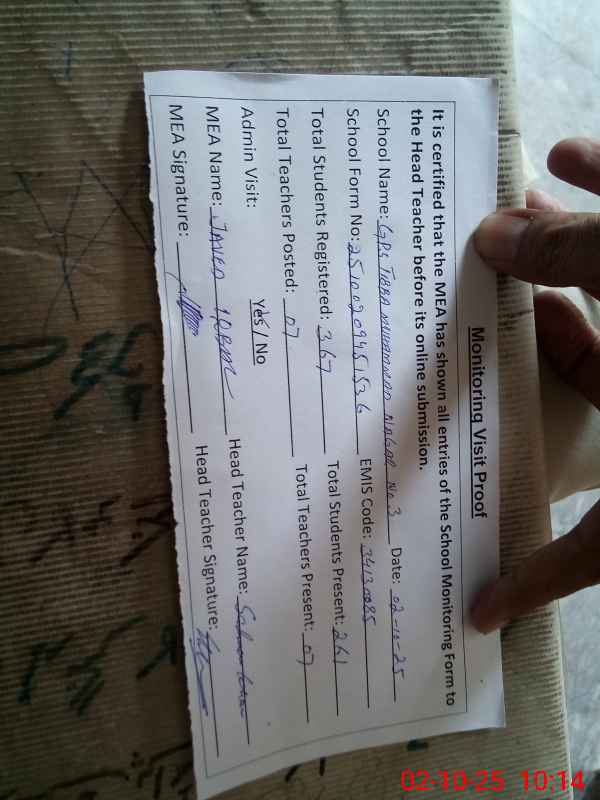 Monitoring Visit Proof
It is certified that the MEA has shown all entries of the School Monitoring Form to
the Head Teacher before its online submission.
School Name: GPS TIBBA MUHAMMAD NAGAR No. 3 Date: 02-10-25
School Form No: EMIS Code:
Total Students Registered: 367 Total Students Present: 261
Total Teachers Posted: 07 Total Teachers Present: 07
Admin Visit: Yes / No
MEA Name: JAVED IQBAL Head Teacher Name:
MEA Signature: Head Teacher Signature:
02-10-25 10:14